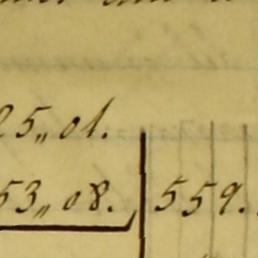 25„01.
53„08. 559.